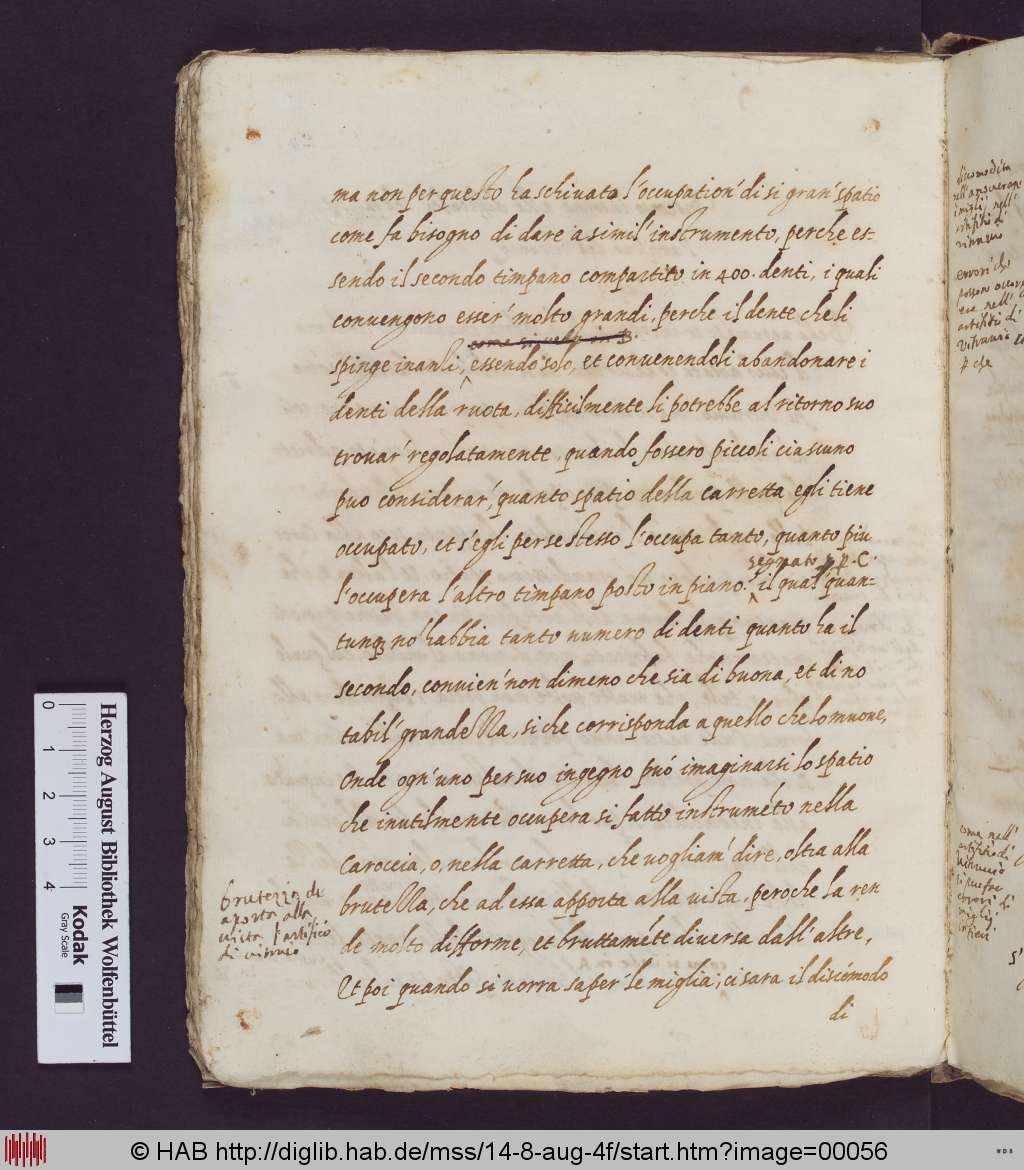 ma non per questo ha schivata l'occupation' di si gran' spatio
come fa bisogno di dare a simil' instrumento, perche es-
sendo il secondo timpano compartito in 400. denti, i quali
convengono esser' molto grandi, perche il dente che li
come si vede in B.
spinge inanzi, essendo solo, et convenendoli abandonare i
denti della ruota, difficilmente li potrebbe al ritorno suo
trovar' regolatamente, quando fossero piccoli ciascuno
puo considerar', quanto spatio della carretta egli tiene
occupato, et s'egli per se stesso l'occupa tanto, quanto piu
segnato p C.
l'occupera l'altro timpano posto in piano. il qual' quan-
tunq3 nó habbia tanto numero di denti quanto ha il
secondo, convien' non dimeno che sia di buona, et di no
tabil' grandezza, si che corrisponda a quello che lo muove,
Onde ogn'uno per suo ingegno puó imaginarsi lo spatio
che inutilmente occupera si fatto instruméto nella
Caroccia, o, nella carretta, che vogliam' dire, oltra alla
bruttezza, che ad essa apporta alla vista, peroche la ren
de molto difforme, et bruttaméte diversa dall'altre,
Et poi quando si vorra saper' le miglia; ci sara il discómodo
di
brutezza che
aporta alla
vista l'artificio
di vitruvio
discomodita
nell'
migli, nell'
di
vitruvio
errori che
possono
nell'
artifitii di
Vitruvio
p che
come nell'
artifitio di
Vitruvio
errori di
miglij
intieri
0
1
2
3
4
Kodak
Gray Scale
Herzog August Bibliothek Wolfenbüttel
© HAB http://diglib.hab.de/mss/14-8-aug-4f/start.htm?image=00056
WDB